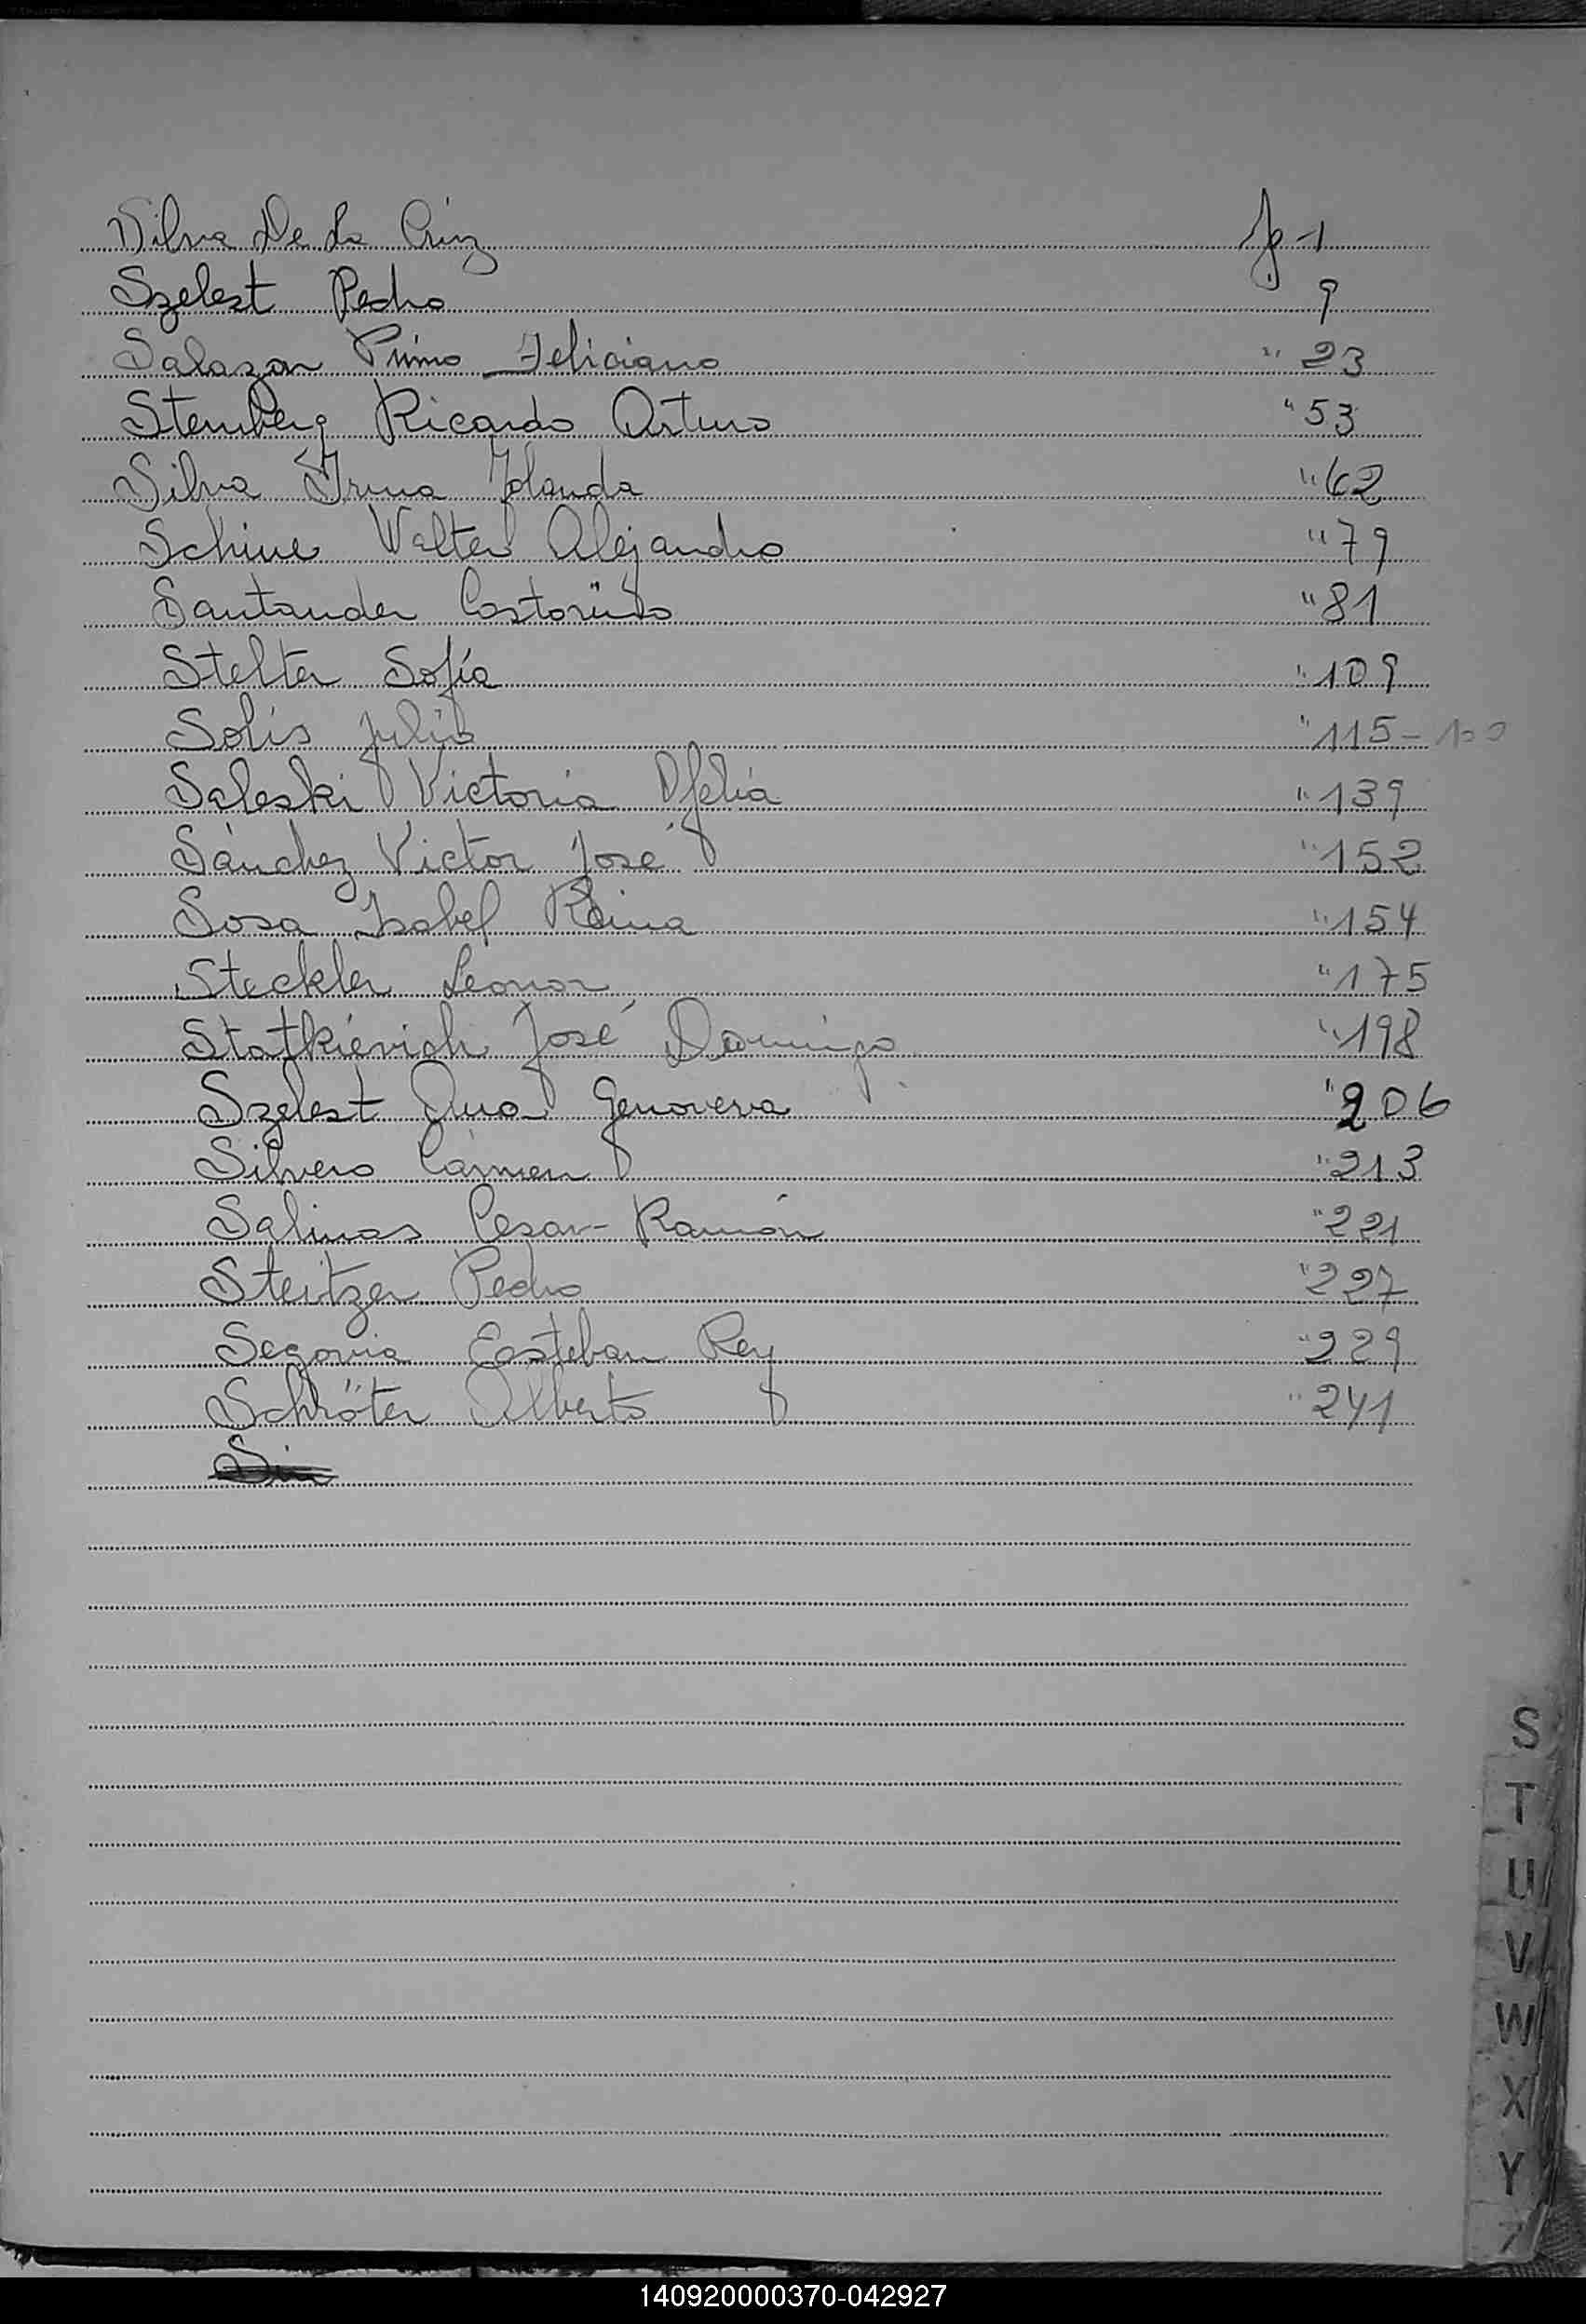 Silva De La Cruz Fº 1
Szelest Pedro 9
Salazar Primo Feliciano " 23
Sternberg Ricardo Arturo " 53
Silva Irma Yolanda " 62
Schine Walter Alejandro " 79
Santander " 81
Stelter Sofía " 109
Solis Julio " 115-100
Saleski Victoria Ofelia " 139
Sánchez Victor José " 152
Sosa Isabel Reina " 154
Steckler Leonor " 175
Statkiévich José Domingo " 198
Szelest Ana Genoveva " 206
Silvero Carmen " 213
Salinas Cesar Ramón " 221
Steitzer Pedro " 227
Segovia Eesteban Rey " 229
Schröter Alberto " 241
S
T
U
V
W
X
Y
Z
140920000370-042927